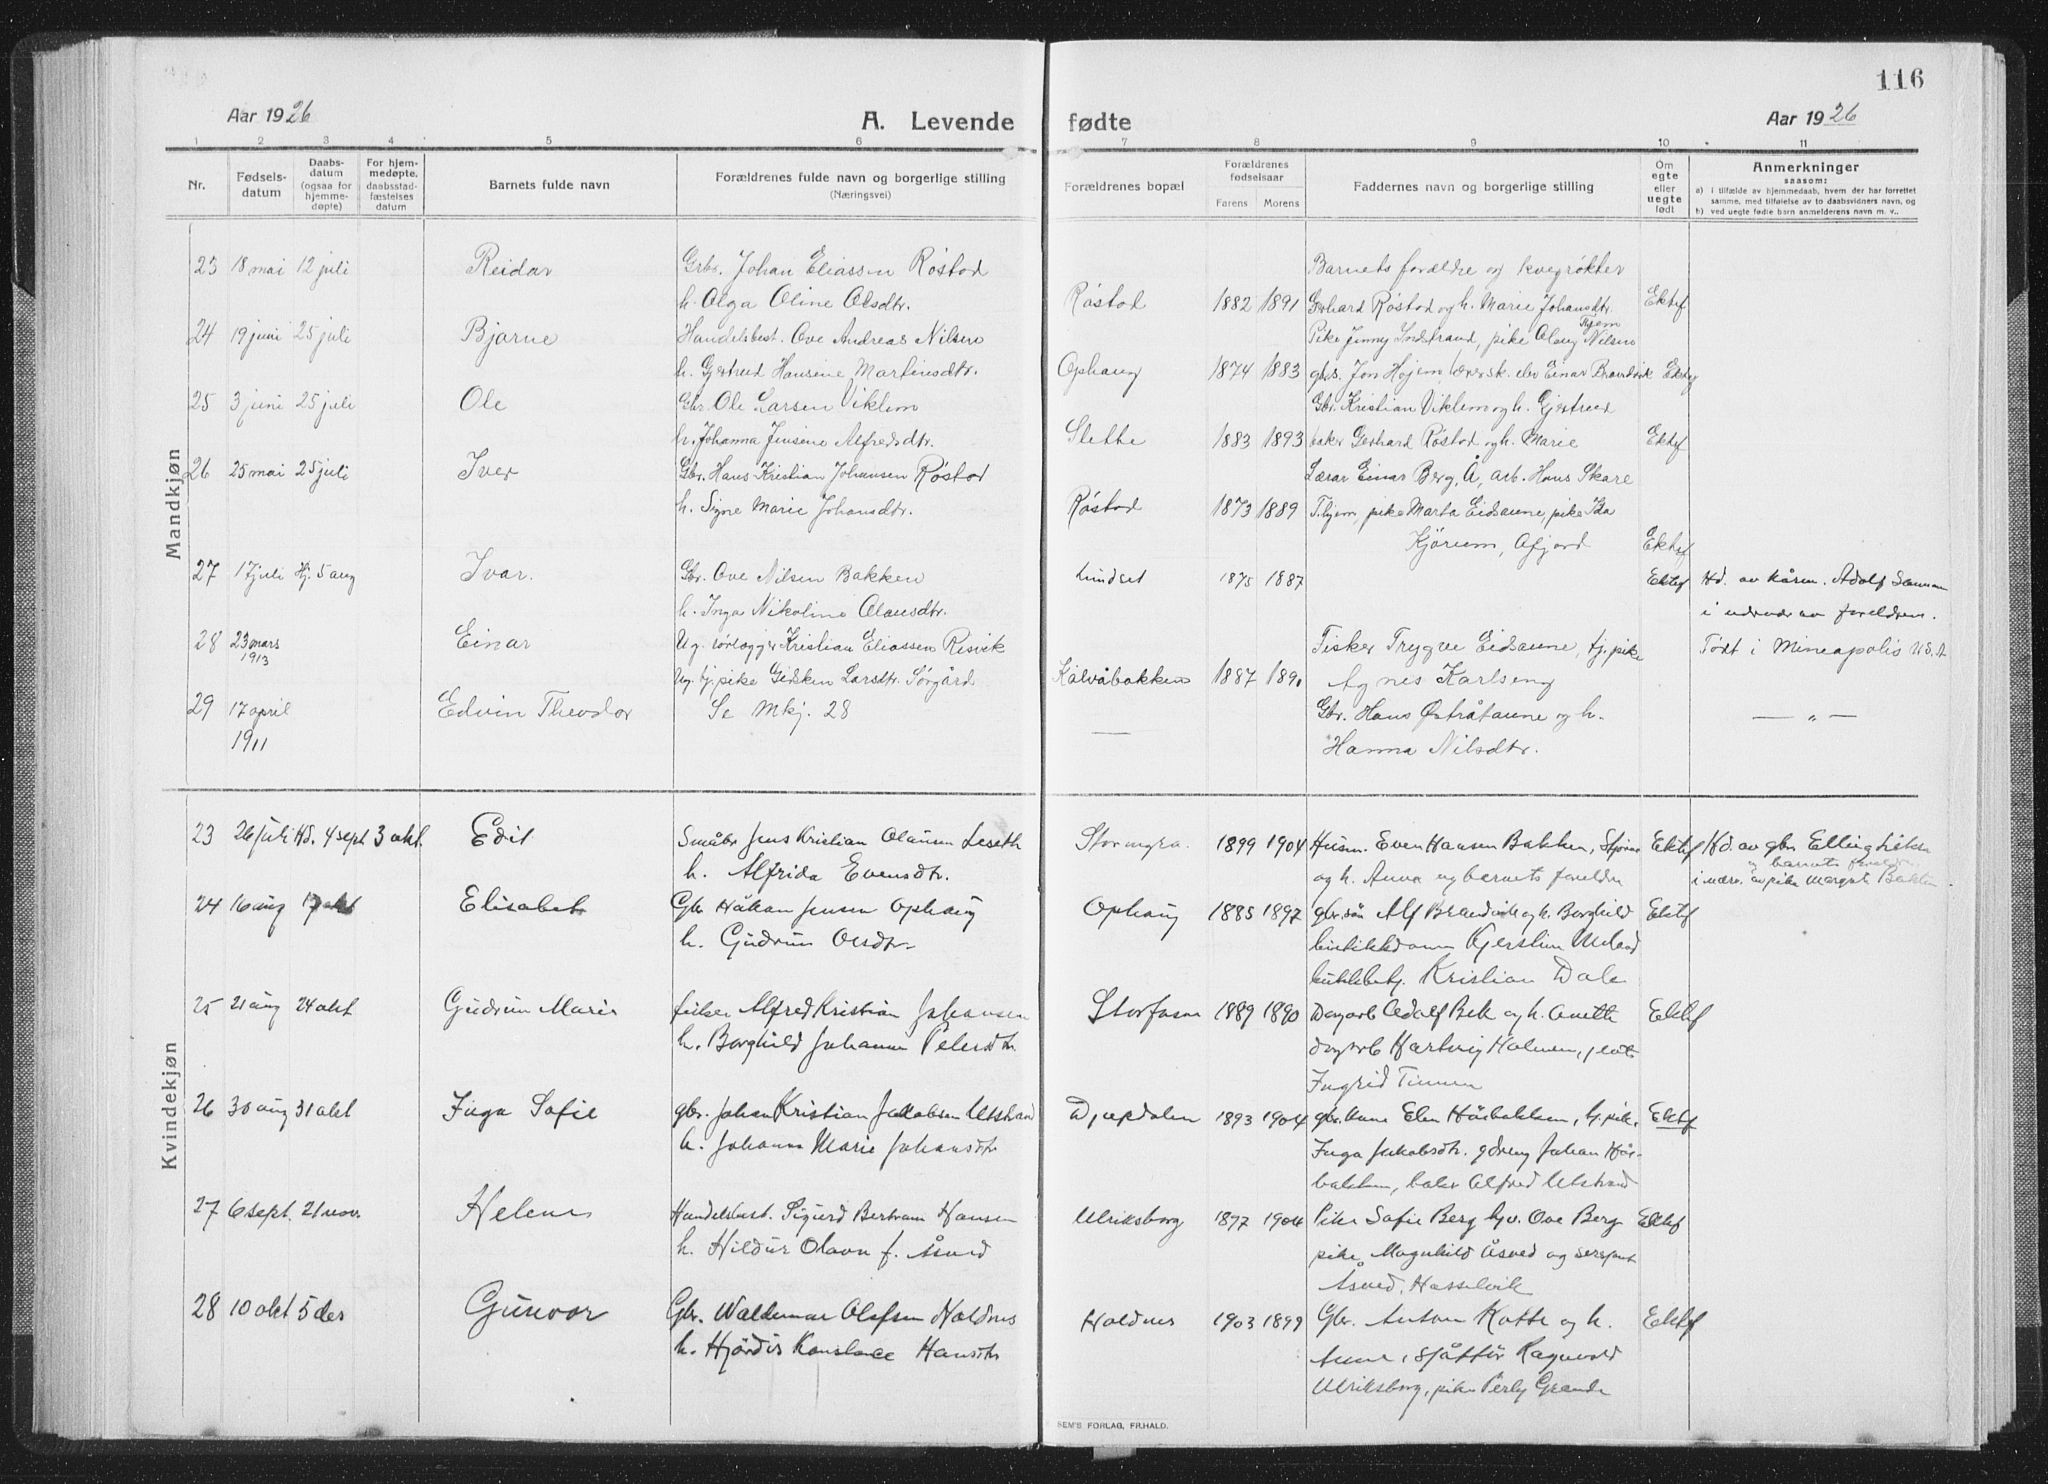 116
Aar 1926
A. Levende fødte
Aar 1926
1 2 3 4 5 6 7 8 9 10 11
Nr.
Fødsels-
datum
Daabs-
datum
(ogsaa for
hjemme-
døpte)
For hjem-
medøpte,
daabsstad-
fæstelses
datum
Barnets fulde navn
Forældrenes fulde navn og borgerlige stilling
(Næringsvei)
Forældrenes bopæl
Forældrenes
fødselsaar
Farens Morens
Faddernes navn og borgerlige stilling
Om
egte
eller
uegte
født
Anmerkninger
saasom:
a) i tilfælde av hjemmedaab, hvem der har forrettet
samme, med tilføielse av to daabsvidners navn, og
b) ved uegte fødte barn anmelderens navn m. v..
Mandkjøn
23 18 mai 12 juli Reidar Grbr. Johan Eliassen Røstad Barnets forældre og kvegrøkter
h. Olga Oline Olsdtr. Røstad 1882 1891 Gerhard Røstad og h. Marie Johansdtr. Ektef
24 19 juni 25 juli Bjarne Handelsbest. Ove Andreas Nilsen Pike Jenny Indstrand, pike Olaug Nilsen
Thjem
h. Gjertrud Hansine Martinsdtr. Ophaug 1874 1883 gbs. Jon Højem, elev Einar Brandvik Ektef
25 3 juni 25 juli Ole Gbr. Ole Larsen Viklem Gbr. Kristian Viklem og h. Gjertrud
h. Johanna Jensine Alfredsdtr. Slette 1883 1893 baker Gerhard Røstad og h. Marie Ektef
26 25 mai 25 juli Iver Gbr. Hans Kristian Johansen Røstad Lærar Einar Berg, Å, arb. Hans Skare
h. Signe Marie Johansdtr. Røstad 1873 1889 Thjem, pike Marta Eidsaune, pike Ida
Kjørum, Afjord Ektef
27 17 juli Hj. 5 aug Ivar. Gbr. Ove Nilsen Bakken Lindset 1875 1887 Ektef Hd. av Adolf
h. Inga Nikoline Olausdtr. i nærvær av foreldren.
28 23 mars Einar Ug. rørlegger Kristian Eliassen Risvik Fisker Trygve Eidsaune, tj. pike Født i Mineapolis U.S.A
1913
Ug. tj. pike Gidsken Larsdtr. Sørgård Kalvåbakken 1887 1890 Agnes Karlseng
29 17 april Edvin Theodor Se Mkj. 28 Gbr. Hans Østråtaune og h. — „ —
1911 — Hanna Nilsdtr.
Kvindekjøn
23 26 juli Hd. 4 sept 3 okt. Edit Småbr Jens Kristian Olausen Leseth Stormyra. 1899 1904 Husm. Even Hansen Bakken, Ektef Hd. av gbr. Elling
h. Alfrida Evensdtr. og h. Anna og barnets foreldre i nærv. av pike Margit Bakken
og barnets foreldre
24 16 aug 17 okt Elisabet Gbr Håkan Jensen Ophaug Ophaug 1885 1897 gbr.søn Alf Brandvik og h. Borghild Ektef
h. Gudrun Olsdtr. butikkdame Kjerstine
Kristian Dale
25 21 aug 24 okt Gudrun Marie fisker Alfred Kristian Johansen Storfosen 1889 1890 Dagarb Adolf Bek og h. Anette Ektef
h. Borghild Johanna Petersdtr. dagarb Hartvig Holmen, pike
Ingrid
26 30 aug 31 okt Inga Sofie gbr. Johan Kristian Jakobsen Utstrand Djupdalen 1893 1904 gbr.kone Elen Håsbakken, tj. pike, Ektef
h. Johanna Marie Johansdtr Inga Jakobsdtr. gdreng Johan Hås-
bakken, baker Alfred Utstrand
27 6 sept. 21 nov. Helene Handelsbest. Sigurd Bertram Hansen Ulriksborg 1897 1904 Pike Sofie Berg tjv. Ove Berg Ektef
h. Hildur Olava f. Åsved pike Magnhild Åsved og sersjant
Åsved, Hasselvik
28 10 okt 5 des Gunvor Gbr. Waldemar Olafsen Holdnes Holdnes 1903 1899 Gbr. Anton Kotte og h. Ektef
h. Hjørdis Konstance Hansdtr Anna, Ragnvald
Ulriksborg, pike Perly Grande
SEM'S FORLAG, FR.HALD.